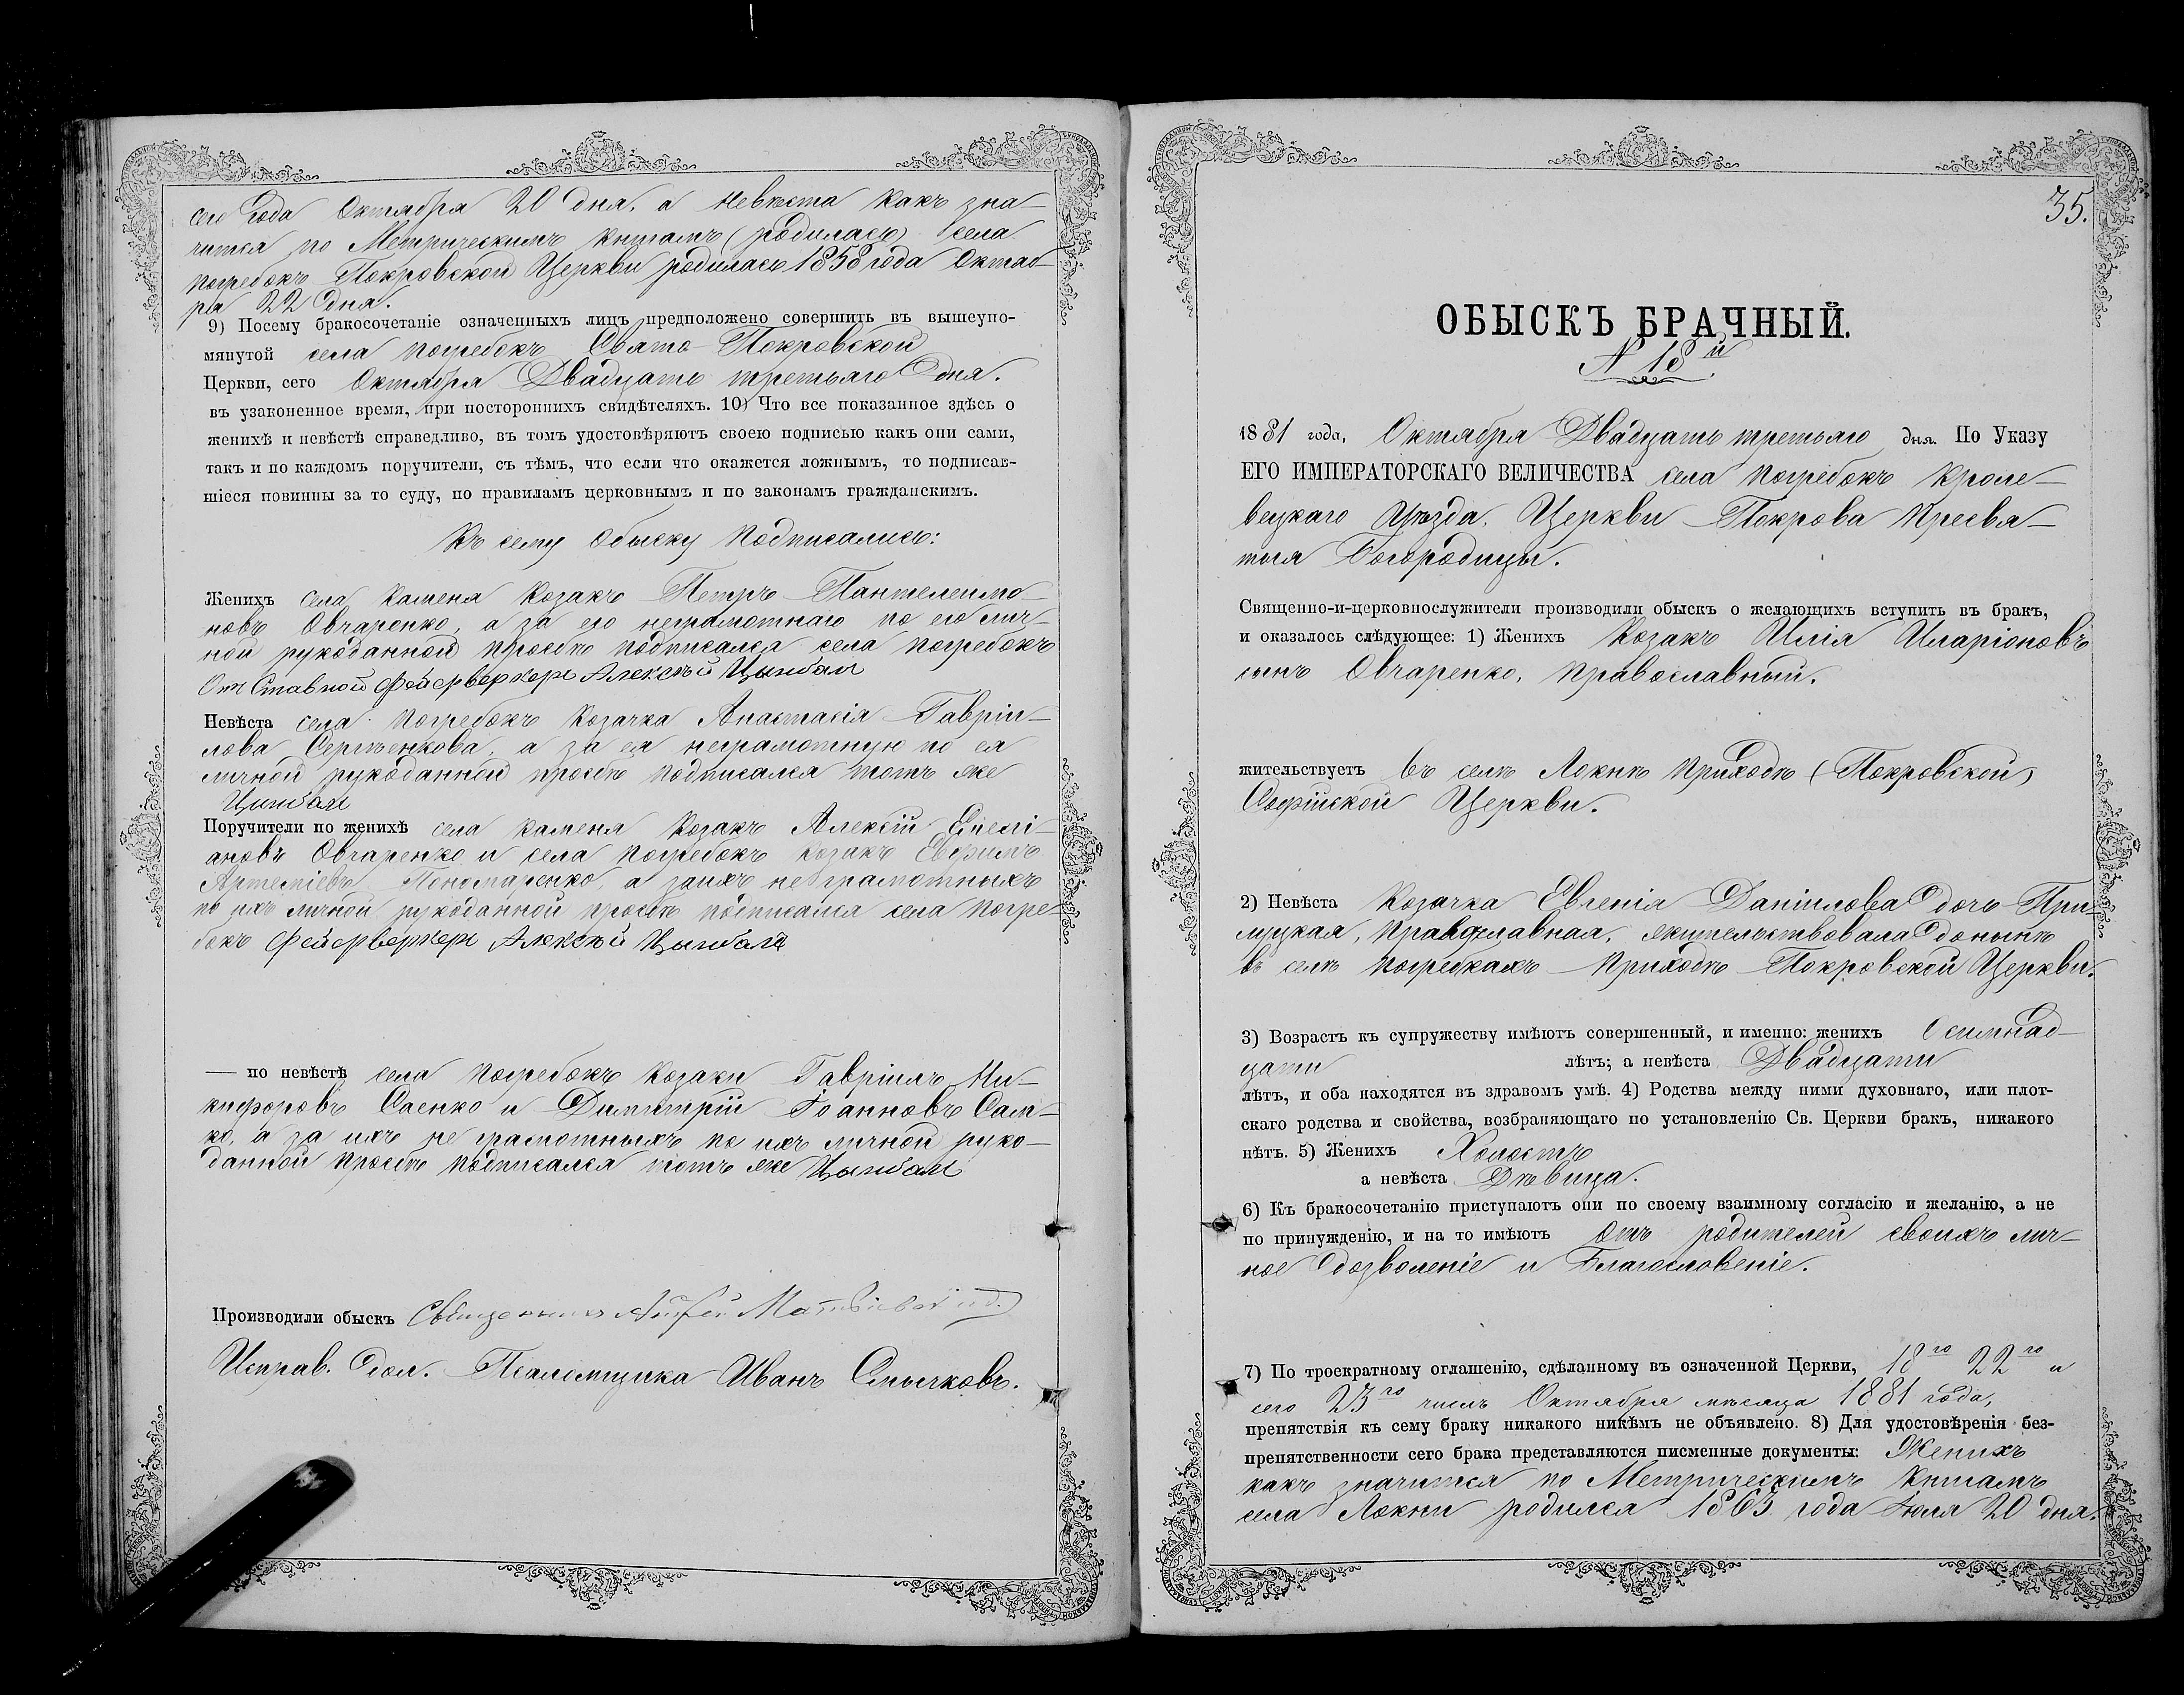 сего года Октября 20 дня, а невѣста какъ зна-
чится по Метрическимъ книгамъ (родилась) села
погребокъ Покровской Церкви родилась 1858 года Октяб-
ря 22 дня.
9) Посему бракосочетаніе означенныхъ лицъ предположено совершить въ вышеупо-
мянутой села погребокъ Свято-Покровской
Церкви, сего Октября Двадцать третьяго дня.
въ узаконенное время, при постороннихъ свидѣтеляхъ. 10) Что все показанное здѣсь о
женихѣ и невѣстѣ справедливо, въ томъ удостовѣряютъ своею подписью какъ они сами,
такъ и по каждомъ поручители, съ тѣмъ, что если что окажется ложнымъ, то подписав-
шіеся повинны за то суду, по правиламъ церковнымъ и по законамъ гражданскимъ.
Къ сему обыску подписались:
Женихъ села Каменя козакъ Петръ Пантелеимо-
новъ Овчаренко, а за его неграмотнаго по его лич-
ной рукоданной просьбѣ подписался села погребокъ
Отъ Ставной фейерверкеръ Алексѣй Цымбал
Невѣста села погребокъ козачка Анастасія Гавріи-
лова Сергѣенкова, а за ея неграмотную по ея
личной рукоданной просьбѣ подписался тотъ же
Цымбал
Поручители по женихѣ села каменя козакъ Алексій Емелі-
ановъ Овчаренко и села погребокъ козакъ Евфимъ
Артеміевъ Пономаренко, а за ихъ не грамотныхъ
по ихъ личной рукоданной просьбѣ подписался села погре-
бокъ фейерверкеръ Алексѣй Цымбалъ
— по невѣстѣ села погребокъ козаки Гавріилъ Ни-
кифоровъ Саенко и Димитрій Іоанновъ Сам-
ко, а за ихъ не грамотныхъ по ихъ личной руко-
данной просьбѣ подписался тотъ же Цымбал
Производили обыскъ Священникъ
Исправ. дол. Псаломщика Иванъ Смычковъ.
35.
ОБЫСКЪ БРАЧНЫЙ.
N 18й
1881 года, Октября Двадцать третьяго дня. По Указу
ЕГО ИМПЕРАТОРСКАГО ВЕЛИЧЕСТВА села погребокъ Кроле-
вецкаго Уѣзда, Церкви Покрова Пресвя-
тыя Богородицы.
Священно-и-церковнослужители производили обыскъ о желающихъ вступить въ бракъ,
и оказалось слѣдующее: 1) Женихъ Козакъ Илія Иларіоновъ
сынъ Овчаренко, православный.
жительствуетъ въ селѣ Локнѣ приходѣ (Покровской)
Софійской Церкви.
2) Невѣста Козачка Евгенія Даніилова дочь При-
луцкая, православная, жительствовала донынѣ
въ селѣ погребкахъ приходѣ Покровской Церкви.
3) Возрастъ къ супружеству имѣютъ совершенный, и именно: женихъ Осимнад-
цати лѣтъ; а невѣста Двадцати
лѣтъ, и оба находятся въ здравомъ умѣ. 4) Родства между ними духовнаго, или плот-
скаго родства и свойства, возбраняющаго по установленію Св. Церкви бракъ, никакого
нѣтъ. 5) Женихъ Холостъ
а невѣста Дѣвица.
6) Къ бракосочетанію приступаютъ они по своему взаимному согласію и желанію, а не
по принужденію, и на то имѣютъ отъ родителей своихъ лич-
ное дозволеніе и Благословеніе.
7) По троекратному оглашенію, сдѣланному въ означенной Церкви, 18го 22го и
сего 23го числъ Октября мѣсяца 1881 года,
препятствія къ сему браку никакого никѣмъ не объявлено. 8) Для удостовѣренія без-
препятственности сего брака представляются писменные документы: Женихъ
какъ значится по Метрическимъ книгамъ
села Локни родился 1863 года Іюля 20 дня.